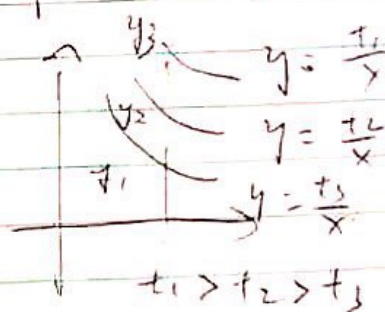 y3 y = t1/x
y2 y = t2/x
y1 y = t3/x
t1 > t2 > t3